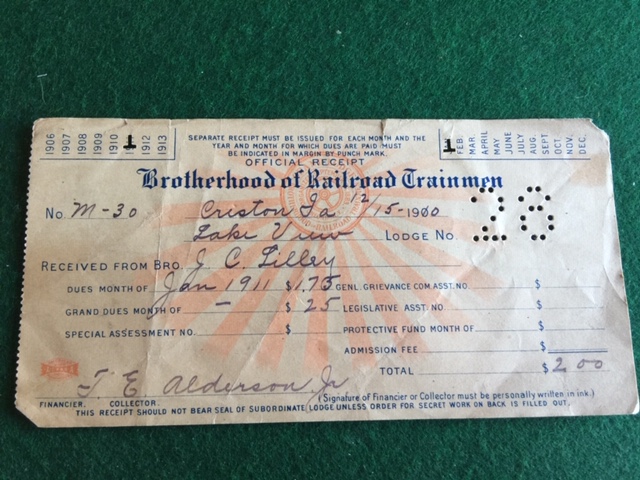 1906 1907 1908 1909 1910 1 1912 1913
SEPARATE RECEIPT MUST BE ISSUED FOR EACH MONTH AND THE
YEAR AND MONTH FOR WHICH DUES ARE PAID MUST
BE INDICATED IN MARGIN BY PUNCH MARK.
1 FEB. MAR. APRIL MAY JUNE JULY AUG. SEPT. OCT. NOV. DEC.
OFFICIAL RECEIPT
Brotherhood of Railroad Trainmen
No. M-30 Creston Ia 12/15-1900
Lake View LODGE No. 28
RECEIVED FROM BRO. J. C. Lilley
DUES MONTH OF Jan 1911 $1.75 GENL. GRIEVANCE COM. ASST. NO. $
GRAND DUES MONTH OF — $ 25 LEGISLATIVE ASST. NO. $
SPECIAL ASSESSMENT NO. $ PROTECTIVE FUND MONTH OF $
ADMISSION FEE $
TOTAL $2 00
T E Alderson Jr
FINANCIER. COLLECTOR. (Signature of Financier or Collector must be personally written in ink.)
THIS RECEIPT SHOULD NOT BEAR SEAL OF SUBORDINATE LODGE UNLESS ORDER FOR SECRET WORK ON BACK IS FILLED OUT.